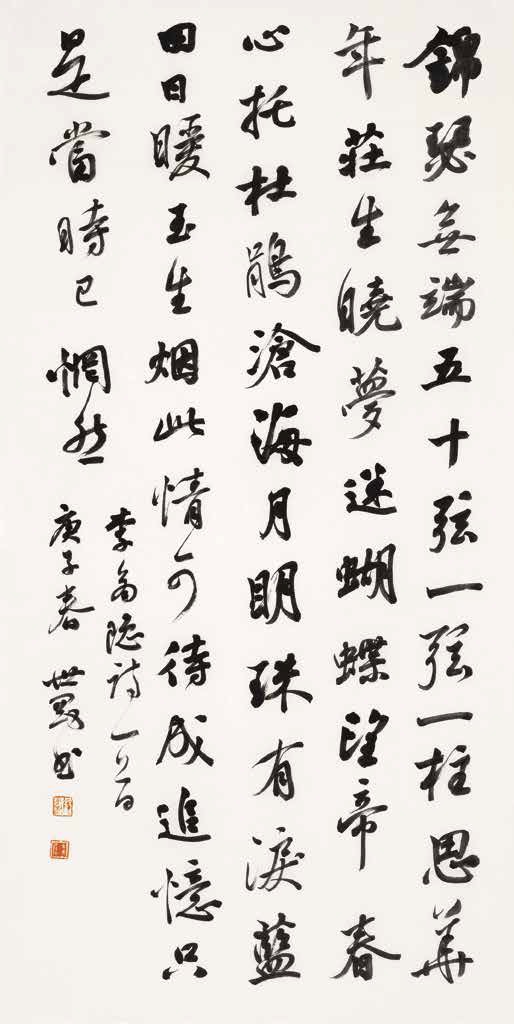 錦瑟無端五十弦一弦一柱思華
年莊生曉夢迷蝴蝶望帝春
心托杜鵑滄海月明珠有淚藍
田日暖玉生烟此情可待成追憶只
是當時已惘然
李商隐詩一首
庚子春 世